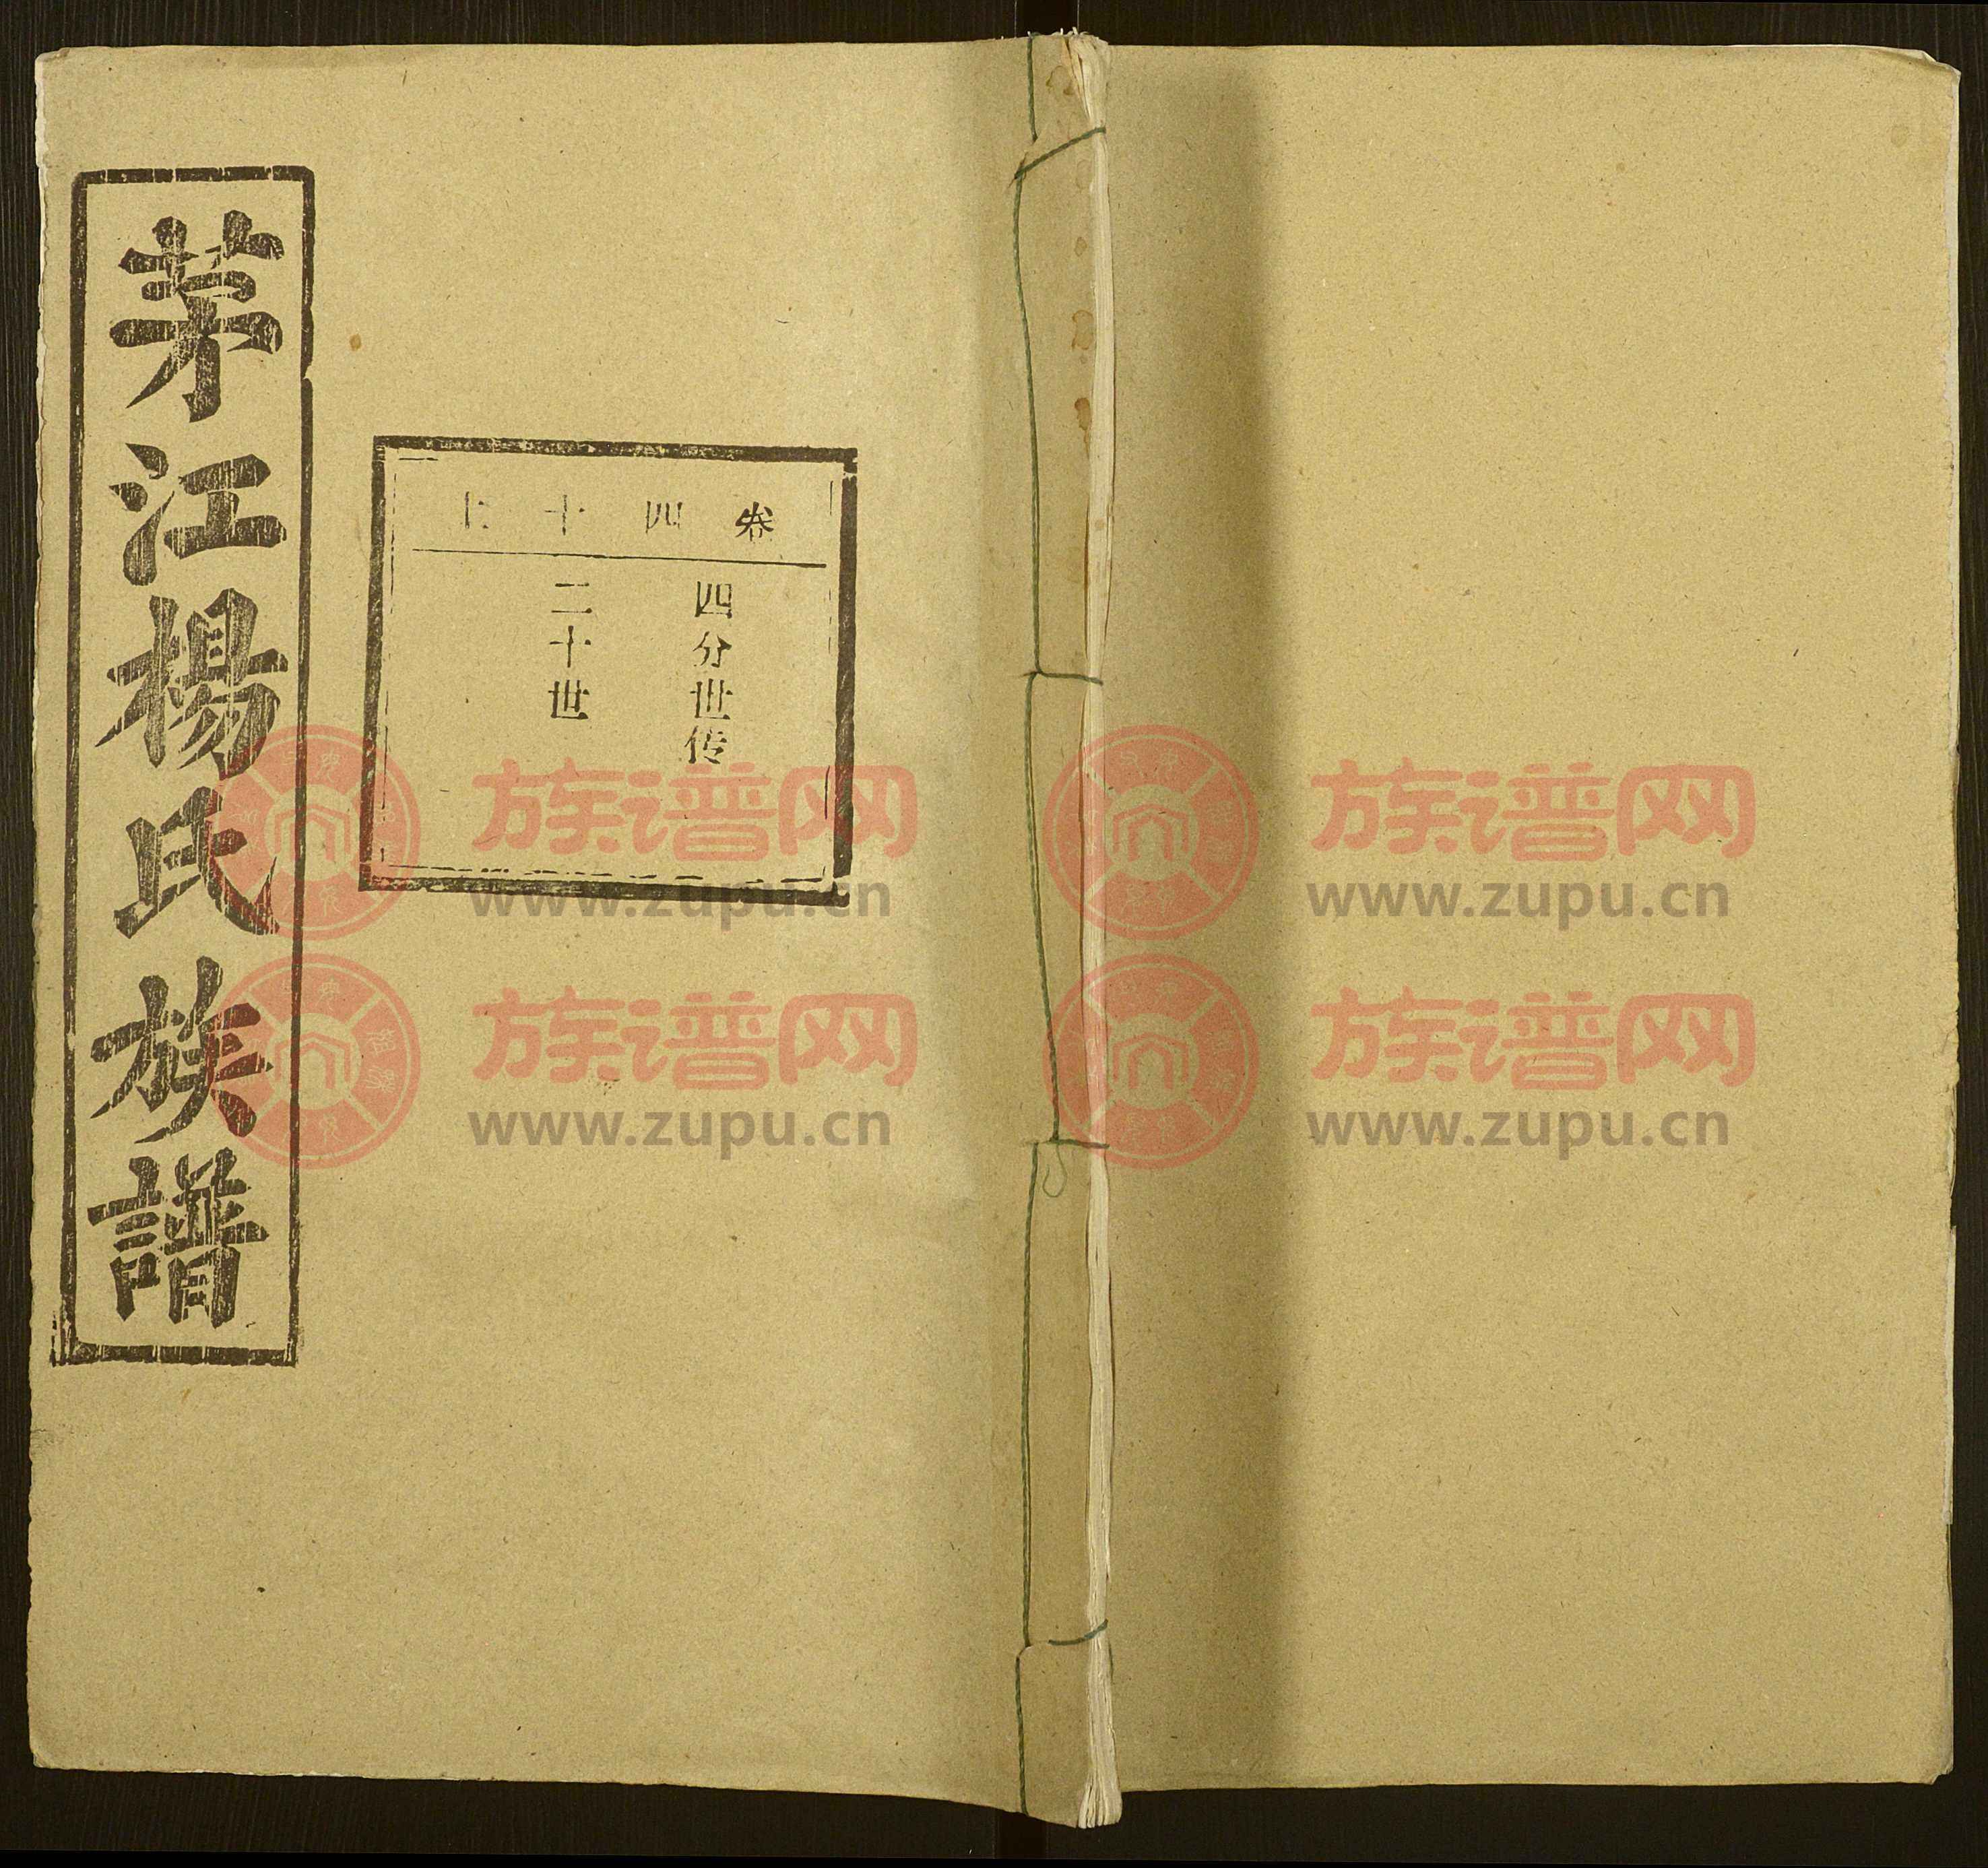 茅江楊氏族譜
卷四十上
四分世传
二十世
族谱网
www.zupu.cn
族谱网
www.zupu.cn
族谱网
www.zupu.cn
族谱网
www.zupu.cn